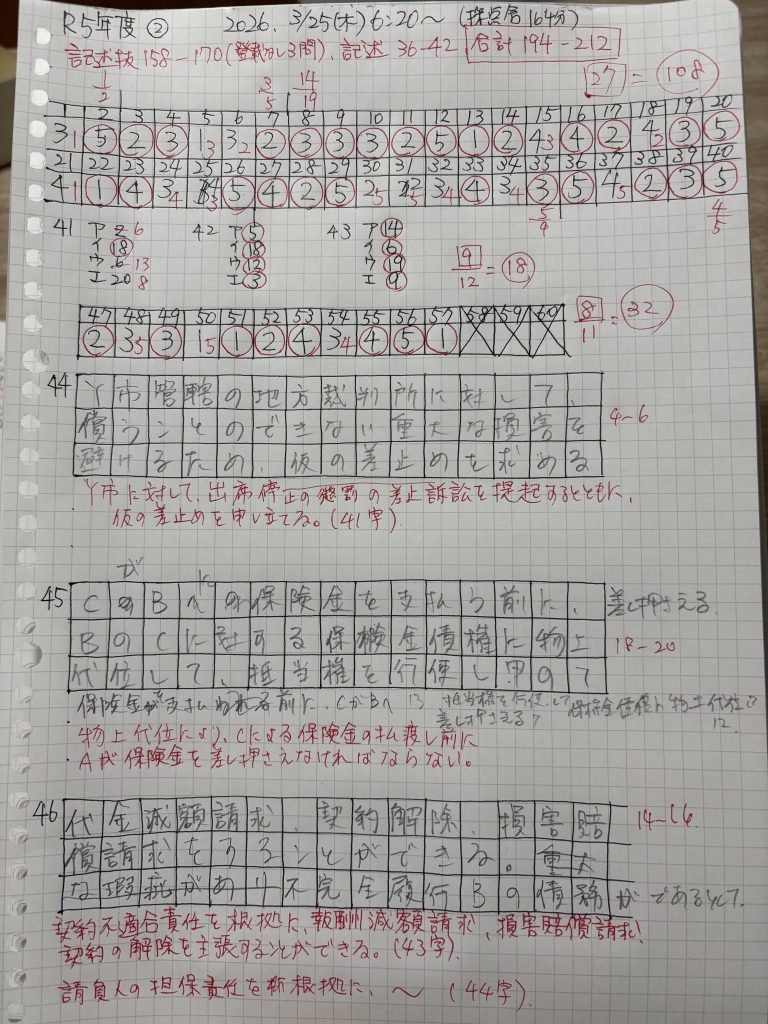 R5年度 ② 2026. 3/25(木) 6:20〜 (採点含164分)
記述抜158-170(登載なし3問)、記述36-42 合計194-212
1/2 3/5 14/19 27 = 108
1 2 3 4 5 6 7 8 9 10 11 12 13 14 15 16 17 18 19 20
3 1 5 2 3 1 3 3 2 2 3 3 3 2 5 1 2 4 3 4 2 4 5 3 5
21 22 23 24 25 26 27 28 29 30 31 32 33 34 35 36 37 38 39 40
4 1 1 4 3 4 3 5 4 2 5 2 5 5 3 4 4 3 4 3 5 4 5 2 3 5
5/9 4/5
41 ア 2 6 42 ア 5 43 ア 14
イ 18 イ 18 イ 6
ウ 6 13 ウ 12 ウ 19
エ 20 8 エ 3 エ 9
9/12 = 18
47 48 49 50 51 52 53 54 55 56 57 58 59 60
2 3 5 3 1 5 1 2 4 3 4 4 5 1
8/11 = 32
44 Y市管轄の地方裁判所に対して、
償うことのできない重大な損害を
避けるため、仮の差止めを求める
4~6
Y市に対して、出席停止の懲罰の差止訴訟を提起するとともに、
仮の差止めを申し立てる。(41字)
が に
45 CのBへの保険金を支払う前に、
差し押さえる
BのCに対する保険金債権に物上
18-20
代位して、抵当権を行使し甲のて
保険金が支払われる前に、CがBへ
抵当権を行使して
差し押さえる
物上代位により、Cによる保険金の払渡し前に
Aが保険金を差し押さえなければならない。
46 代金減額請求、契約解除、損害賠
14-16
償請求をすることができる。重大
な瑕疵があり不完全履行Bの債務が であるとして
契約不適合責任を根拠に、報酬減額請求、損害賠償請求、
契約の解除を主張することができる。(43字)
請負人の担保責任を根拠に、〜 (44字)